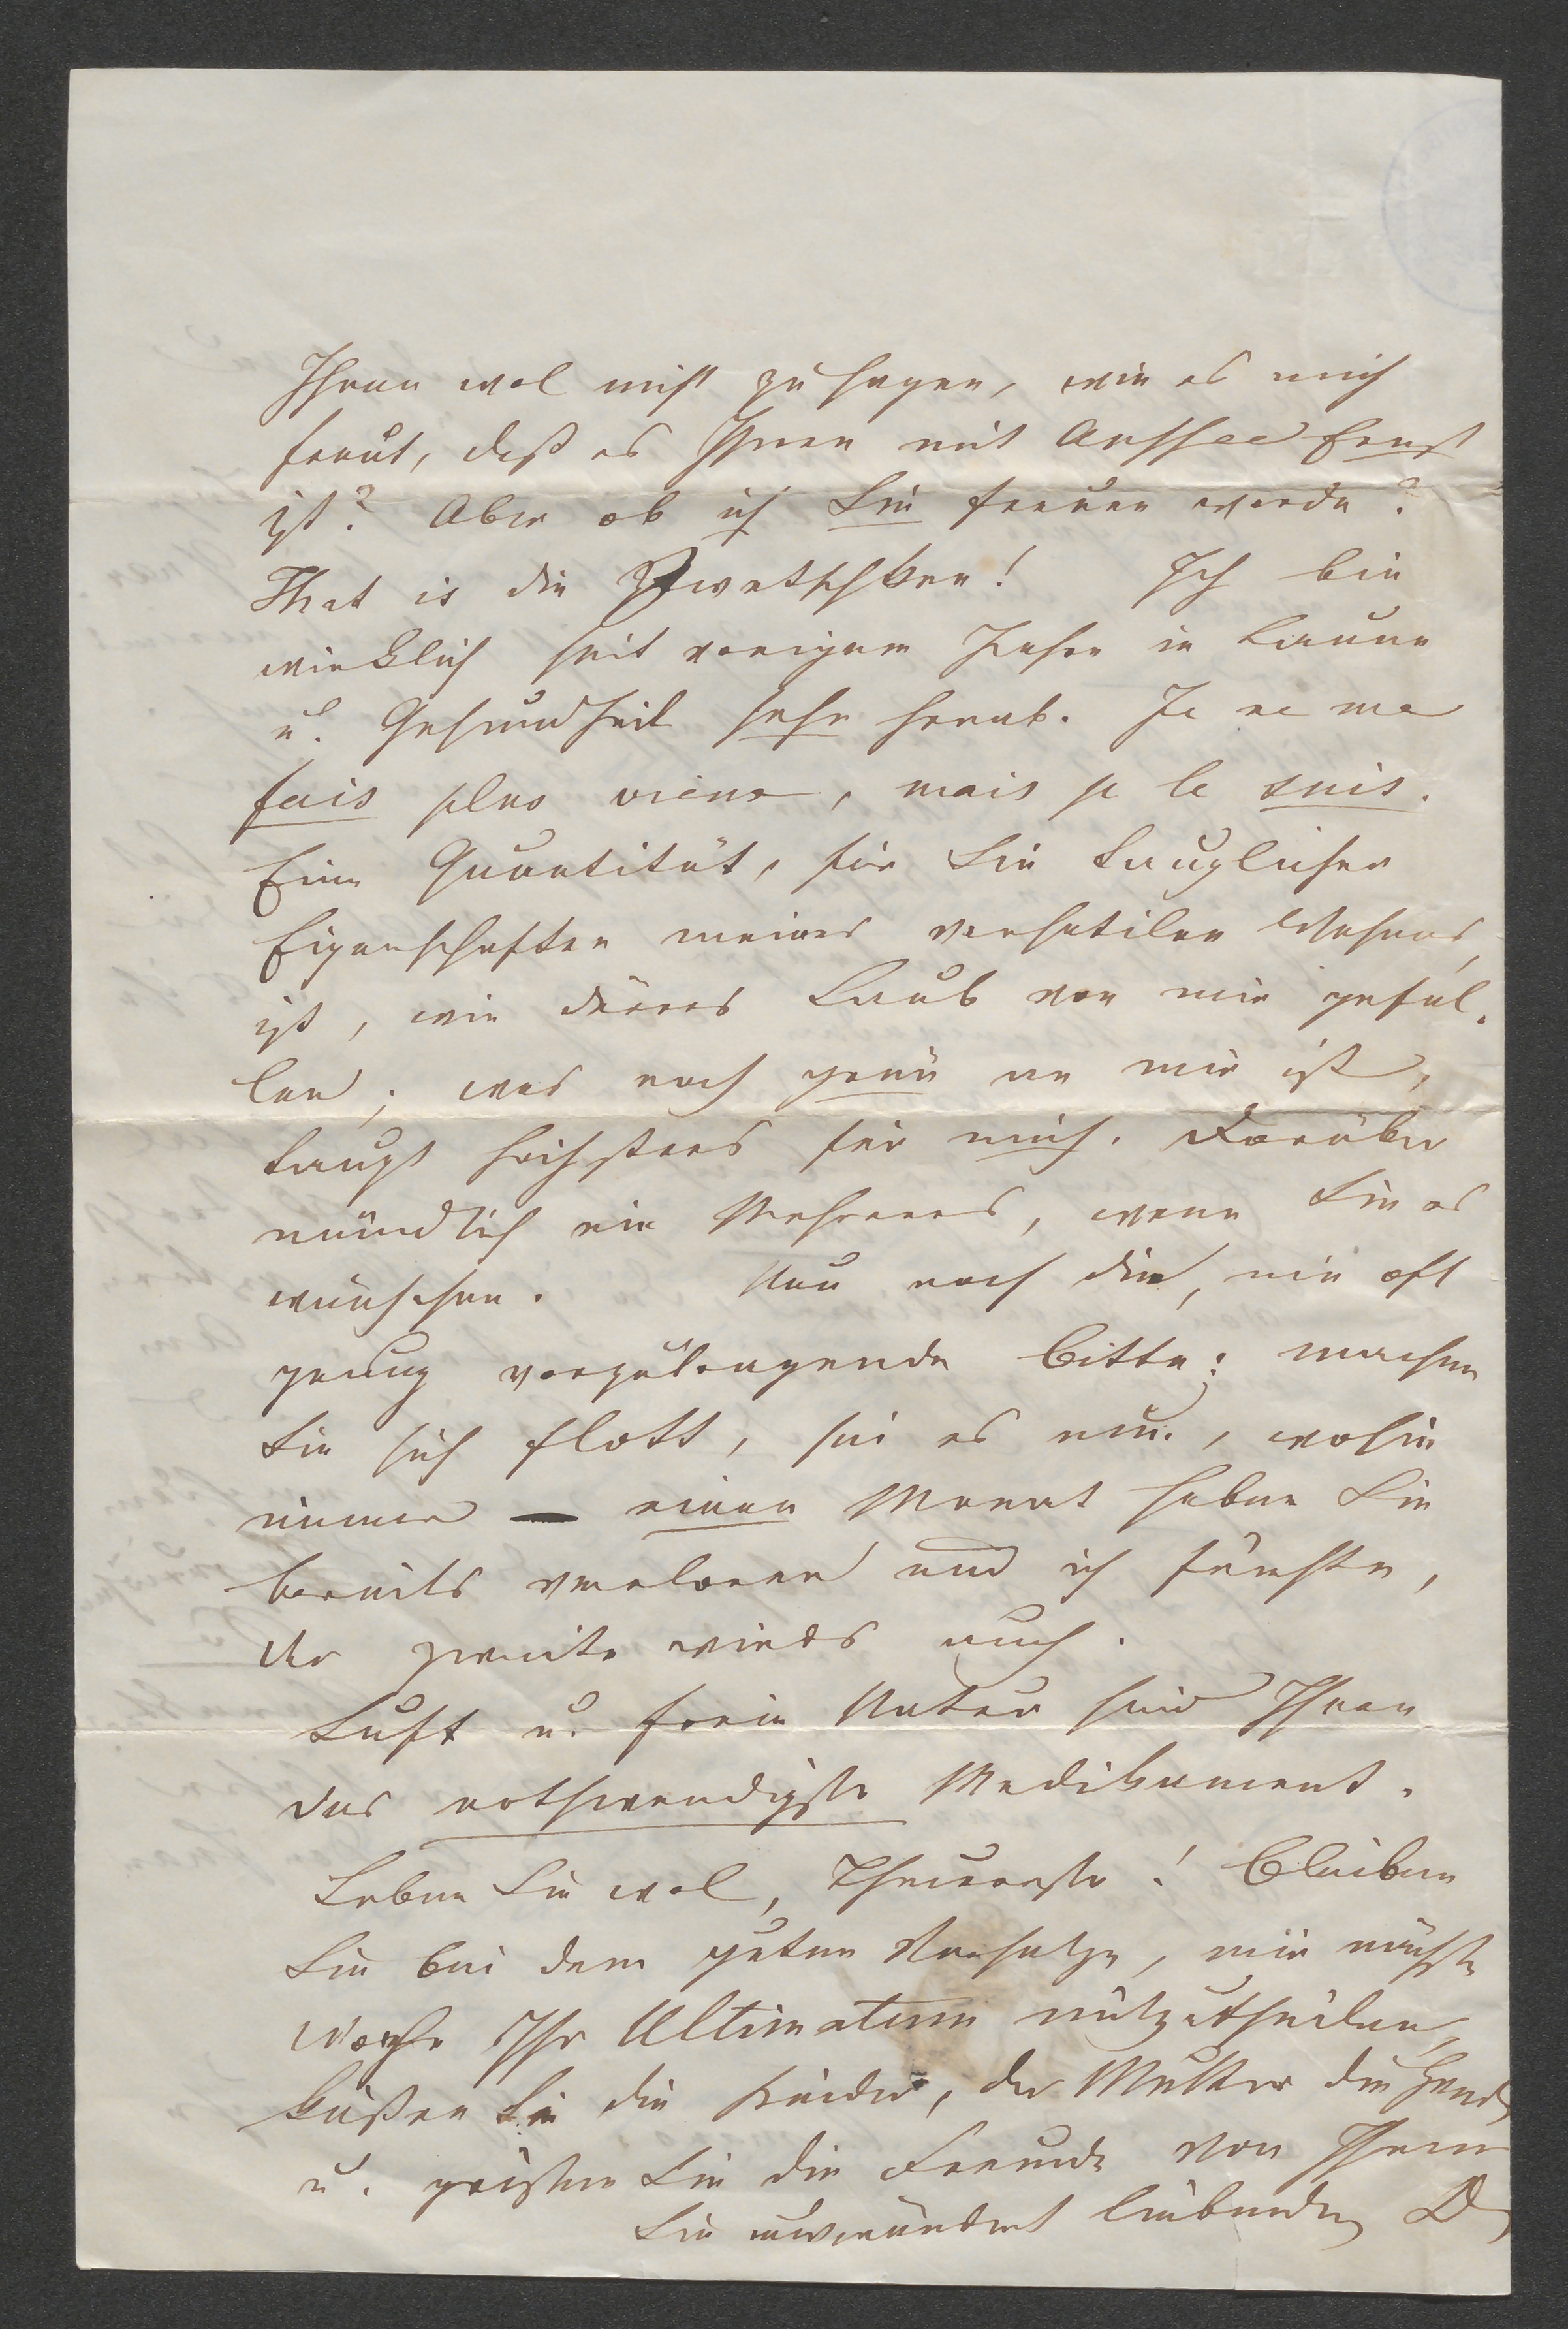 Ihnen wol nicht zu sagen, wie es mich
freut, daß es Ihnen mit Aussee Ernst
ist? Aber ob ich Sie freuen werde?
That is die Zwetschken! Ich bin
wirklich seit vorigem Jahre in Laune
u. Gesundheit sehr herab. Je ne me
fais plus vieux, mais je le suis.
Eine Quantität, für Sie tauglicher
Eigenschaften meines versatilen Wesens,
ist, wie dürres Laub von mir gefal-
len; was noch grün an mir ist,
taugt höchstens für mich. Darüber
mündlich ein Mehreres, wenn Sie es
wünschen. Nun noch die, nie oft
genug vorzutragende Bitte: machen
Sie sich flott, sei es nun, wohin
immer — einen Monat haben Sie
bereits verloren und ich fürchte,
der zweite wirds auch.
Luft u. freie Natur sind Ihnen
das nothwendigste Medikament.
Leben Sie wol, Theuerste! Bleiben
Sie bei dem guten Vorsatze, mir nächste
Woche Ihr Ultimatum mitzutheilen,
küßen Sie die Kinder, der Mutter die Hände
u. grüßen Sie die Freunde von Ihrem
Sie unverändert liebenden D